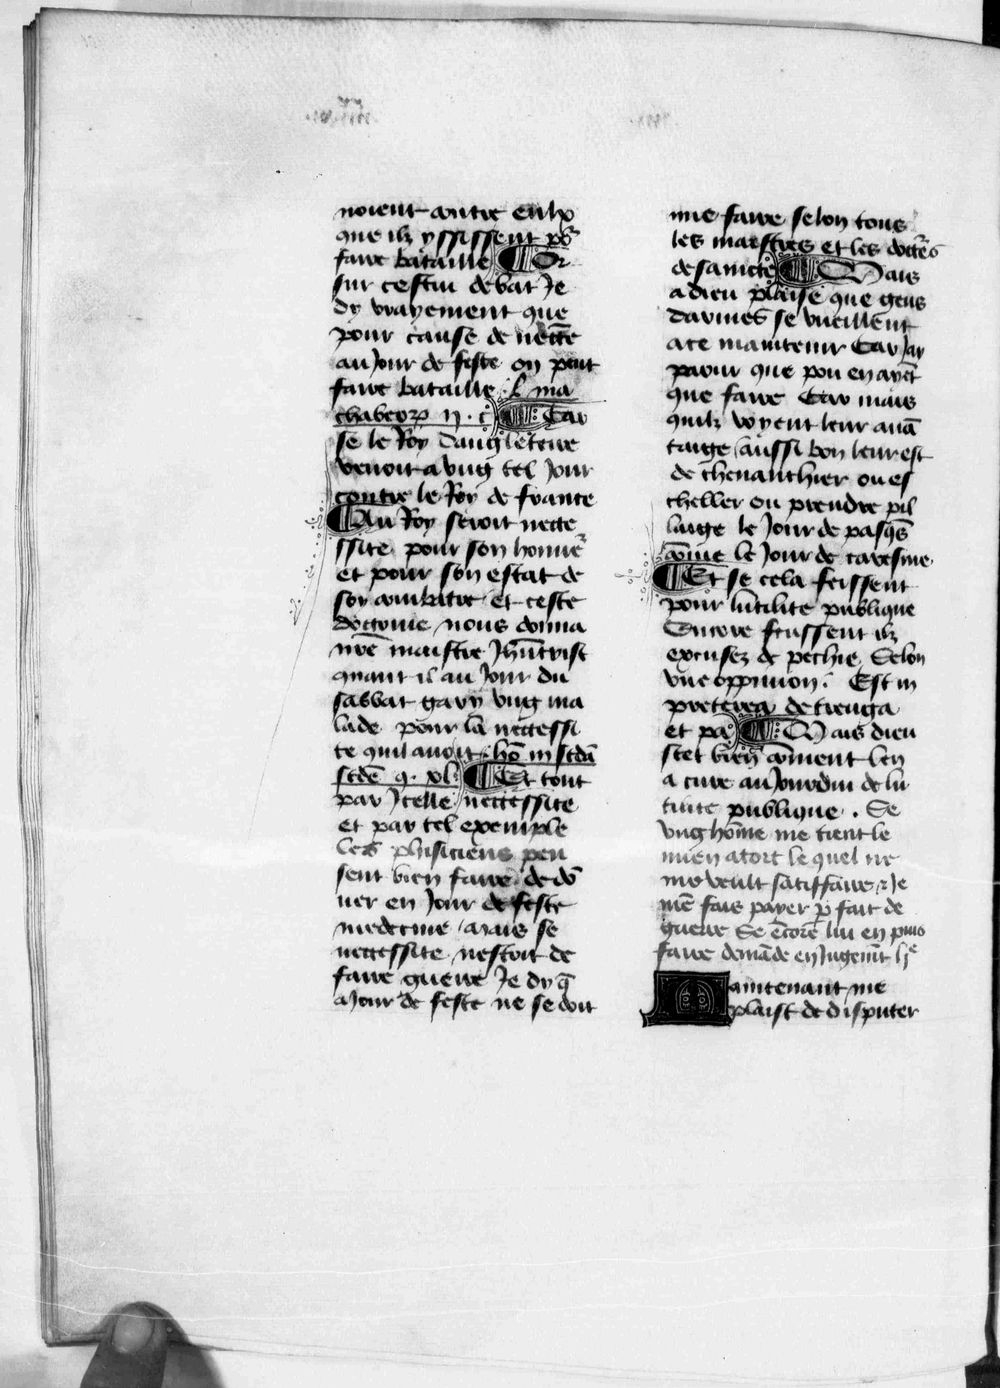 noient contre eulx
que ilz yssissent po᷑
faire bataille ¶ Or
sur cestui debat Je
dy vrayement que
pour cause de necc̄e
au Jour de feste on peut
faire bataille . l ma
chabeorꝝ ij . c̄ ¶ Car
se le Roy dangleterre
venoit a vng tel Jour
contre le Roy de france
¶ Au Roy seroit necce
ssite pour son honne᷑
et pour son estat de
soy combatre et ceste
doctrine nous donna
nr̄e maistre Jhūcrist
quant il au Jour du
sabbat gary vng ma
lade pour la necessi
te quil auoit
¶ Et tout
par Jcelle neccessite
et par tel exemple
les phisiciens peu
sent bien faire de dō
ner en Jour de feste
medecine Mais se
neccessite nestoit de
faire guerre Je dy q̄
a Jour de feste ne se doit
mie faire selon tous
les maistres et les doctēs
de saincte ¶ Mais
a dieu plaise que gens
darmes se vueillent
a ce maintenir Car Jay
paour que pou en ayēt
que faire Car mais
quilz voyent leur auā
taige aussi bon leur est
de cheuauchier ou es
cheller ou prendre pil
laige le Jour de pasq̄s
cōme le Jour de caresme
¶ Et se cela feissent
pour lutilite publique
Encore fussent ilz
excusez de pechie Selon
vne oppinion . Est in
preterea de treuga
et pa ¶ Mais dieu
scet bien cōment len
a cure au Jourdui de lu
tilite publique . Se
vng hōme me tient le
mien a tort le quel ne
me veult satiffaire Je
me fais payer p̄ fait de
guerre Se encore lui en puis
faire demāde en Jugemt̄
Maintenant me
plaist de disputer